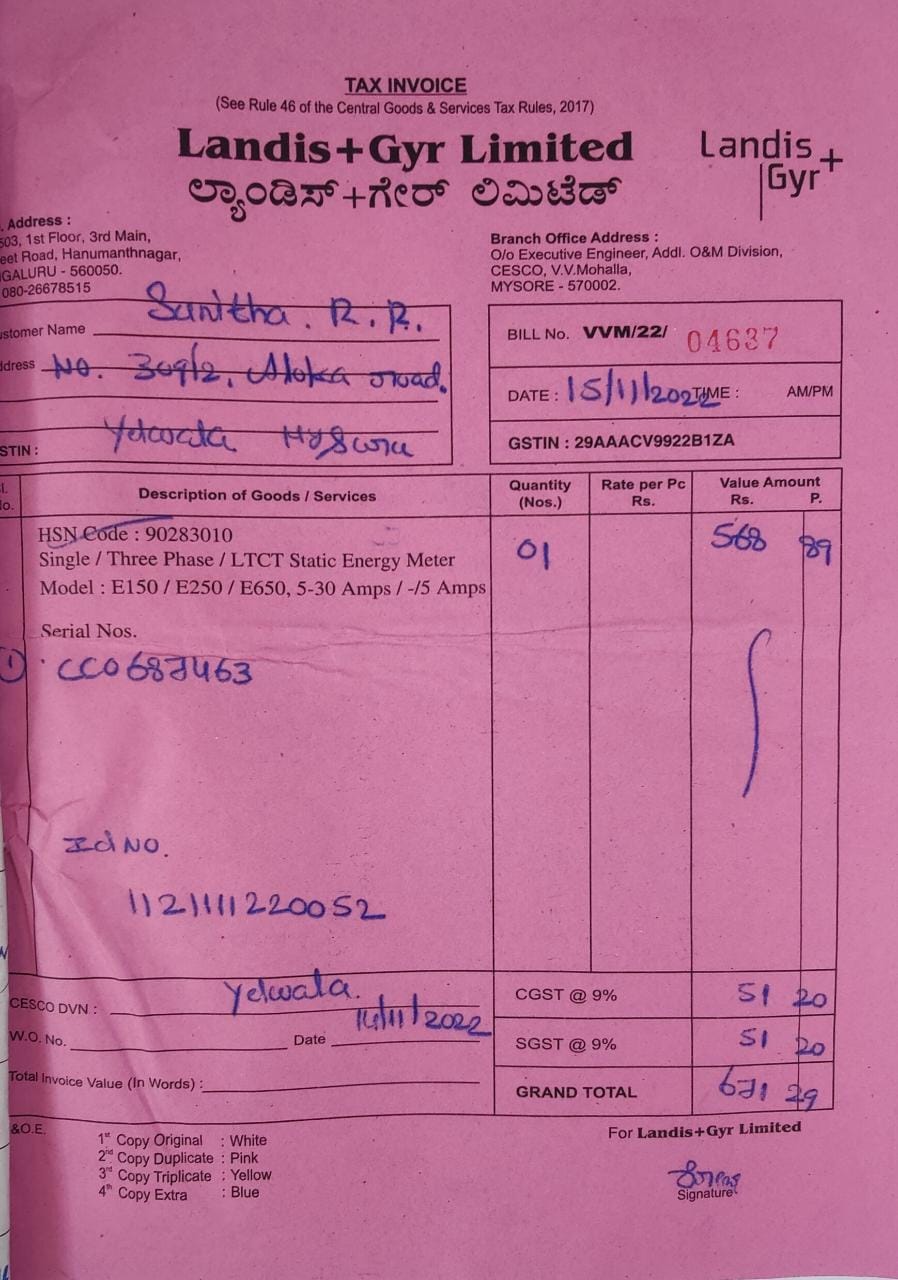 TAX INVOICE
(See Rule 46 of the Central Goods & Services Tax Rules, 2017)
Landis+Gyr Limited
ಲ್ಯಾಂಡಿಸ್+ಗೇರ್ ಲಿಮಿಟೆಡ್
Landis+
Gyr
. Address :
503, 1st Floor, 3rd Main,
eet Road, Hanumanthnagar,
GALURU - 560050.
080-26678515
Branch Office Address :
O/o Executive Engineer, Addl. O&M Division,
CESCO, V.V.Mohalla,
MYSORE - 570002.
ustomer Name Sunitha. R. R.
ddress No. 309/2, Aloka road.
Yelwala
STIN :
BILL No. VVM/22/ 04637
DATE : 15/11/2022 TIME : AM/PM
GSTIN : 29AAACV9922B1ZA
l. No. Description of Goods / Services Quantity (Nos.) Rate per Pc Rs. Value Amount Rs. P.
HSN Code : 90283010 01 568 89
Single / Three Phase / LTCT Static Energy Meter
Model : E150 / E250 / E650, 5-30 Amps / -/5 Amps
Serial Nos.
1 CC0687463
Id NO.
1121111220052
CESCO DVN : Yelwala. CGST @ 9% 51 20
W.O. No. Date 14/11/2022 SGST @ 9% 51 20
Total Invoice Value (In Words) : GRAND TOTAL 671 29
&O.E.
1st Copy Original : White
2nd Copy Duplicate : Pink
3rd Copy Triplicate : Yellow
4th Copy Extra : Blue
For Landis+Gyr Limited
Signature